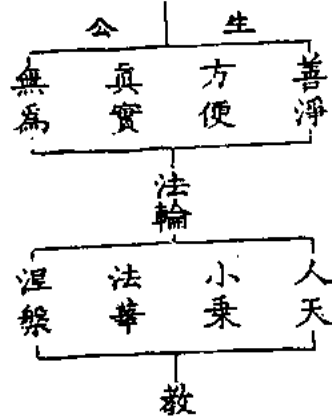 生公
善淨
方便
眞實
無為
法輪
人天
小乘
法華
涅槃
教